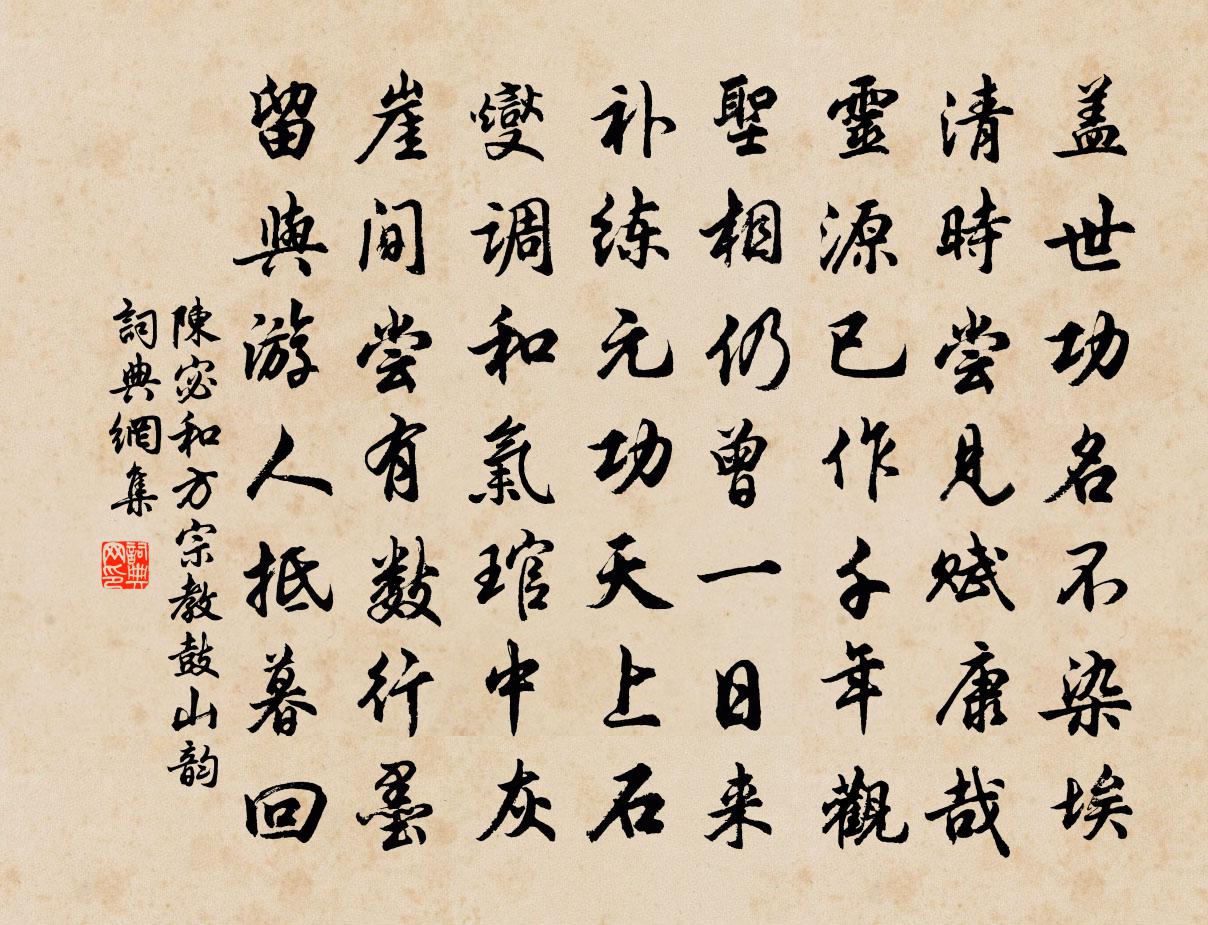 盖世功名不染埃
清時尝見赋康哉
靈源已作千年觀
聖相仍曾一日来
补练元功天上石
燮调和氣琯中灰
崖间尝有数行墨
留與游人抵暮回
陳宓和方宗教鼓山韵
詞典網集
詞典网印